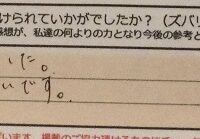 けられていかがでしたか？（ズバリ
感想が、私達の何よりの力となり今後の参考と
した。
いです。